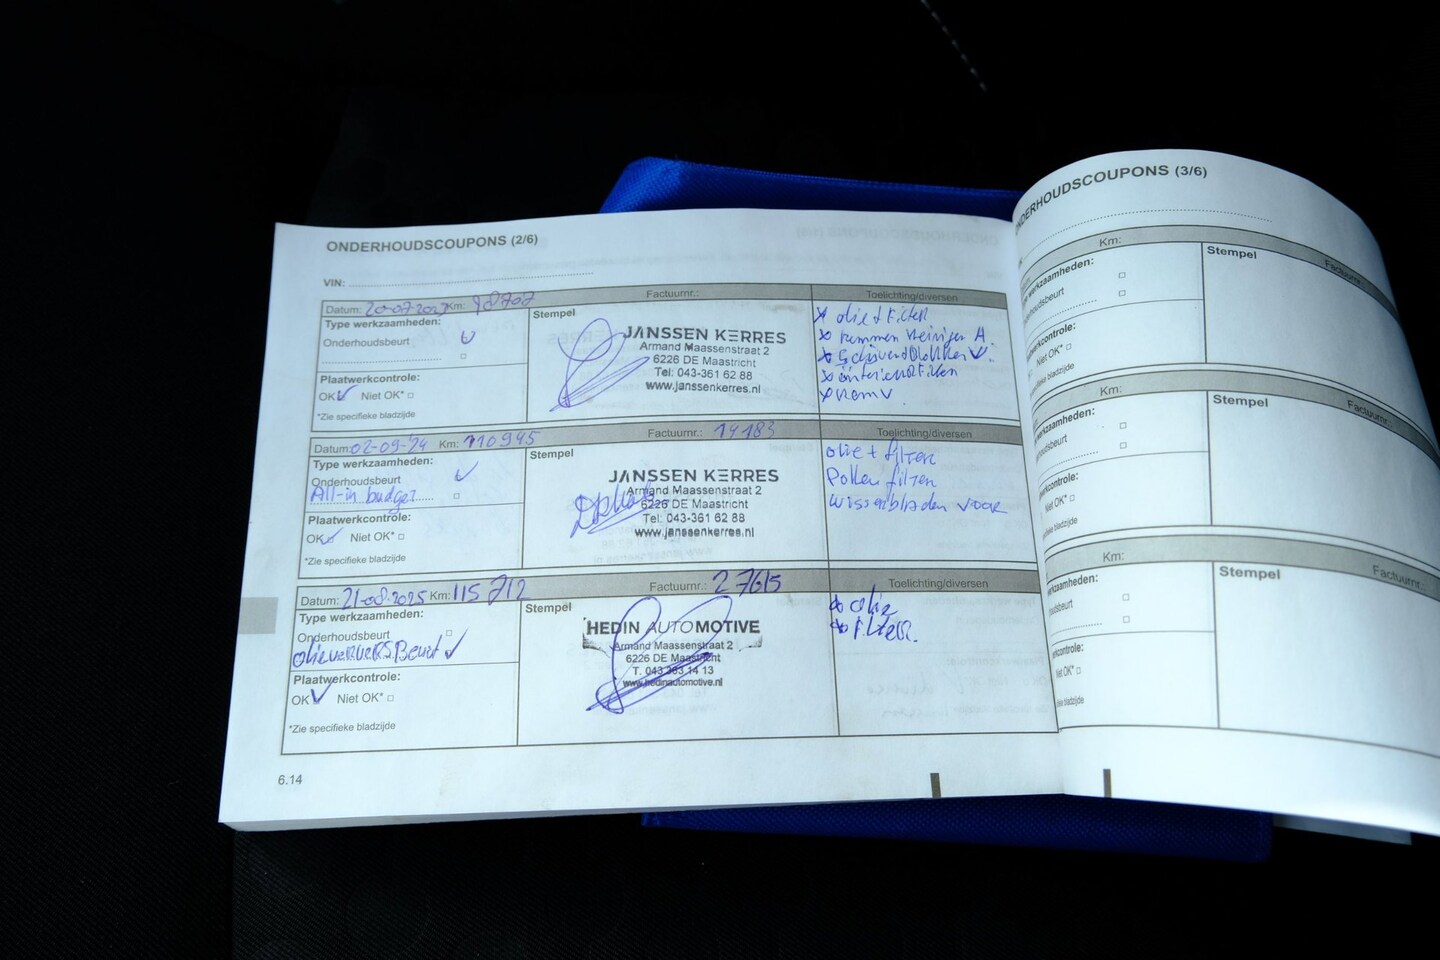 ONDERHOUDSCOUPONS (2/6)
VIN:
Datum: 20-07-2023 Km: 98707 Factuurnr.: Toelichting/diversen
Type werkzaamheden:
Onderhoudsbeurt
Plaatwerkcontrole:
OK Niet OK*
*Zie specifieke bladzijde
Stempel
JANSSEN KERRES
Armand Maassenstraat 2
6226 DE Maastricht
Tel: 043-361 62 88
www.janssenkerres.nl
x olie + filter
x remmen reinigen A
x
x interieurfilter
x remv
Datum: 02-09-'24 Km: 110945 Factuurnr.: 14183 Toelichting/diversen
Type werkzaamheden:
Onderhoudsbeurt
All-in budget
Plaatwerkcontrole:
OK Niet OK*
*Zie specifieke bladzijde
Stempel
JANSSEN KERRES
Armand Maassenstraat 2
6226 DE Maastricht
Tel: 043-361 62 88
www.janssenkerres.nl
olie + filter
Pollen filter
wisserbladen voor
Datum: 21-08-2025 Km: 115 712 Factuurnr.: 27615 Toelichting/diversen
Type werkzaamheden:
Onderhoudsbeurt
olieverversBeurt
Plaatwerkcontrole:
OK Niet OK*
*Zie specifieke bladzijde
Stempel
HEDIN AUTOMOTIVE
Armand Maassenstraat 2
6226 DE Maastricht
www.hedinautomotive.nl
* olie
* filter.
6.14
NDERHOUDSCOUPONS (3/6)
Km: Factuurnr
werkzaamheden:
houdsbeurt
Stempel
kcontrole:
Niet OK*
bladzijde
Km: Factuurnr.:
werkzaamheden:
oudsbeurt
Stempel
kcontrole:
Niet OK*
bladzijde
Km: Factuurnr.:
rkzaamheden:
udsbeurt
Stempel
controle:
Niet OK*
bladzijde